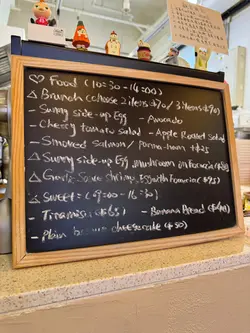 ♡ Food (10:30-14:00)
△ Brunch (choose 2 items $70/ 3 items $90)
- Sunny side-up Egg - Avocado
- Cheesy tomato salad - Apple Rocket Salad
- Smoked Salmon / parma-ham + $25
△ Sunny side-up Egg mushroom on Focaccia
△ Garlic Sauce shrimp, Egg with Focaccia ($95)
△ Sweet = (09:00 - 16:30)
- Tiramisu ($65) - Banana Bread
- Plain cheesecake ($50)